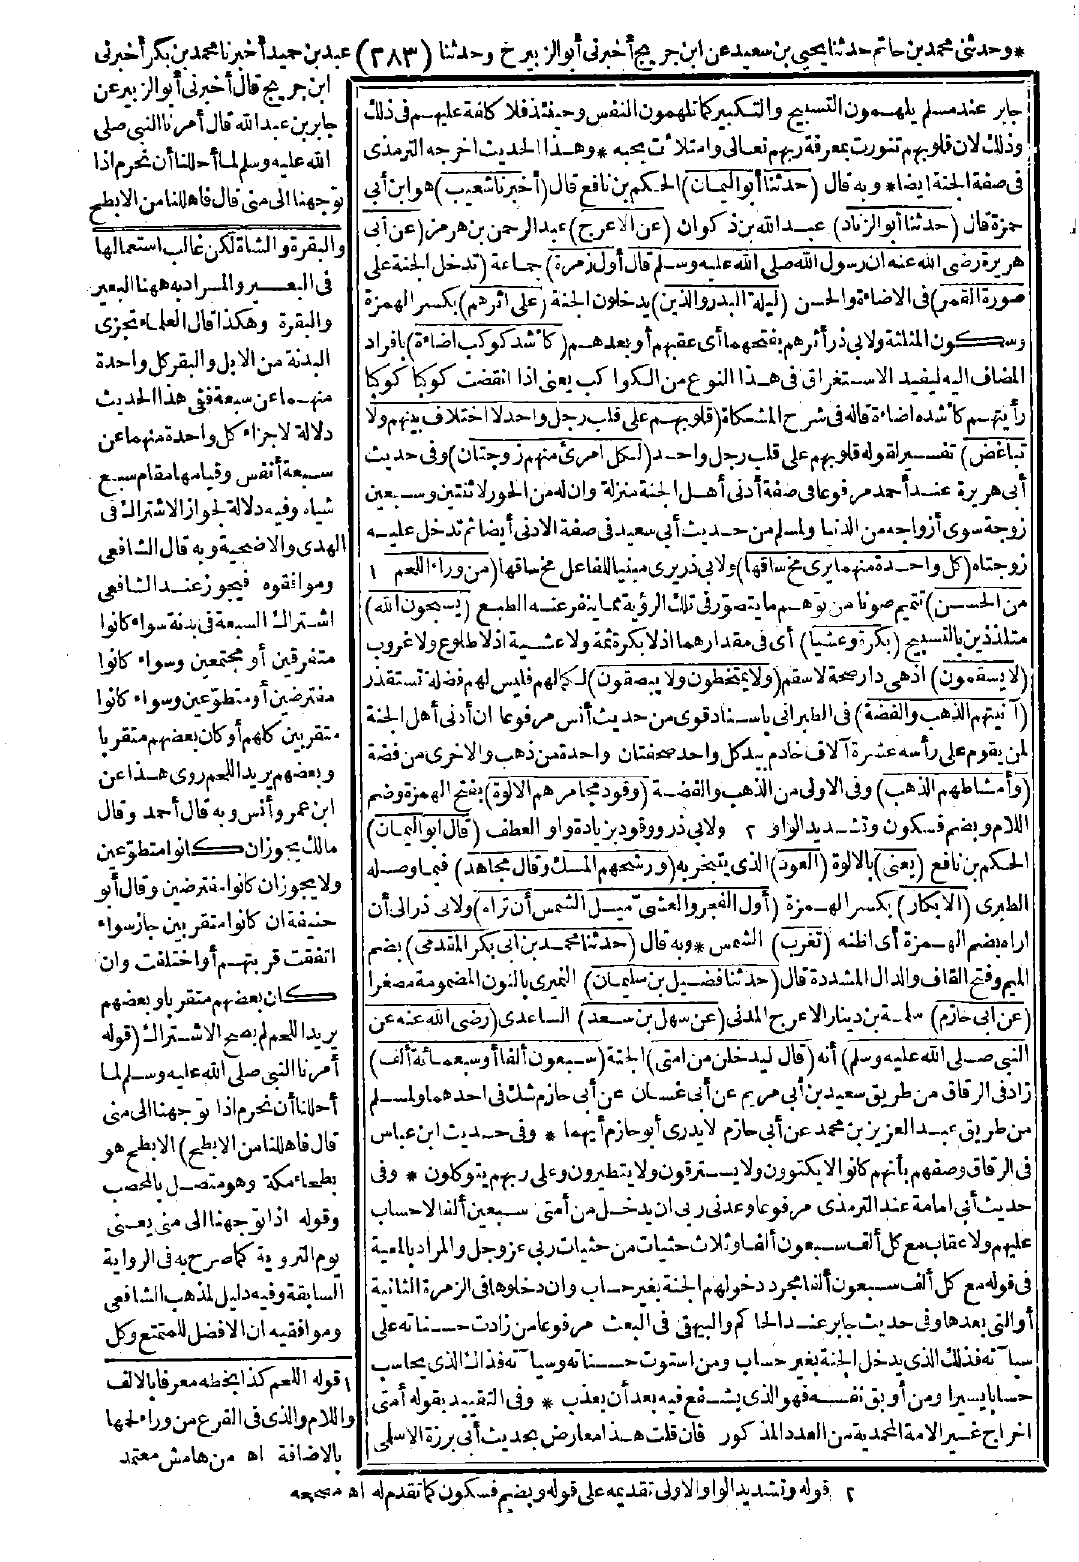 *وحدثني محمد بن حاتم حدثنا يحيى بن سعيد عن ابن جريج أخبرني أبو الزبير ح وحدثنا (٣٨٣) عبد بن حميد أخبرنا محمد بن بكر أخبرني
ابن جريج قال أخبرني أبو الزبير عن
جابر بن عبد الله قال أمرنا النبي صلى
الله عليه وسلم لما أحللنا أن نحرم اذا
توجهنا الى منى قال فاهللنا من الابطح
والبقرة والشاة لكن غالب استعمالها
في البعير والمراد به ههنا البعير
والبقرة وهكذا قال العلماء تجزى
البدنة من الابل والبقر كل واحدة
منهما عن سبعة ففي هذا الحديث
دلالة لاجزاء كل واحدة منهما عن
سبعة أنفس وقيامها مقام سبع
شياه وفيه دلالة لجواز الاشتراك في
الهدى والاضحية وبه قال الشافعي
وموافقوه فيجوز عند الشافعي
اشتراك السبعة في بدنة سواء كانوا
متفرقين أو مجتمعين وسواء كانوا
مفترضين أو متطوعين وسواء كانوا
متقربين كلهم أو كان بعضهم متقربا
وبعضهم يريد اللحم روى هذا عن
ابن عمر وأنس وبه قال أحمد وقال
مالك يجوز ان كانوا متطوعين
ولا يجوز ان كانوا مفترضين وقال أبو
حنيفة ان كانوا متقربين جاز سواء
اتفقت قربتهم أو اختلفت وان
كان بعضهم متقربا وبعضهم
يريد اللحم لم يصح الاشتراك (قوله
أمرنا النبي صلى الله عليه وسلم لما
أحللنا أن نحرم اذا توجهنا الى منى
قال فاهللنا من الابطح) الابطح هو
بطحاء مكة وهو متصل بالمحصب
وقوله اذا توجهنا الى منى يعنى
يوم التروية كما صرح به في الرواية
السابقة وفيه دليل لمذهب الشافعي
وموافقيه ان الافضل للمتمتع وكل
جابر عند مسلم يلهمون التسبيح والتكبير كما تلهمون النفس وحينئذ فلا كلفة عليهم في ذلك
وذلك لان قلوبهم تنورت بمعرفة ربهم تعالى وامتلأت بحبه * وهذا الحديث اخرجه الترمذى
في صفة الجنة ايضا * وبه قال (حدثنا أبو اليمان) الحكم بن نافع قال (أخبرنا شعيب) هو ابن أبي
حمزة قال (حدثنا أبو الزناد) عبد الله بن ذكوان (عن الاعرج) عبد الرحمن بن هرمز (عن أبي
هريرة رضى الله عنه ان رسول الله صلى الله عليه وسلم قال أول زمرة) جماعة (تدخل الجنة على
صورة القمر) في الاضاءة والحسن (ليلة البدر والذين) يدخلون الجنة (على اثرهم) بكسر الهمزة
وسكون المثلثة ولابي ذر أثرهم بفتحهما أى عقبهم أو بعدهم (كأشد كوكب اضاءة) بافراد
المضاف اليه ليفيد الاستغراق في هذا النوع من الكواكب يعنى اذا انقضت كوكبا كوكبا
رأيتهم كأشده اضاءة قاله في شرح المشكاة (قلوبهم على قلب رجل واحد لا اختلاف بينهم ولا
تباغض) تفسير لقوله قلوبهم على قلب رجل واحد (لكل امرئ منهم زوجتان) وفي حديث
أبي هريرة عند أحمد مرفوعا في صفة أدنى أهل الجنة منزلة وان له من الحور لاثنتين وسبعين
زوجة سوى أزواجه من الدنيا ولمسلم من حديث أبي سعيد في صفة الادنى أيضا ثم تدخل عليه
زوجتاه (كل واحدة منهما يرى مخ ساقها) ولابي ذر يرى مبنيا للفاعل مخ ساقها (من وراء اللحم ١
من الحسن) تتميم صونا من توهم ما يتصور في تلك الرؤية مما ينفر عنه الطبع (يسبحون الله)
متلذذين بالتسبيح (بكرة وعشيا) أى في مقدارهما اذ لا بكرة ثمة ولا عشية اذ لا طلوع ولا غروب
(لا يسقمون) اذ هى دار صحة لا سقم (ولا يمتخطون ولا يبصقون) لكمالهم فليس لهم فضلة تستقذر
(آنيتهم الذهب والفضة) في الطبراني باسناد قوى من حديث أنس مرفوعا ان أدنى أهل الجنة
لمن يقوم على رأسه عشرة آلاف خادم بيد كل واحد صحفتان واحدة من ذهب والاخرى من فضة
(وأمشاطهم الذهب) وفي الاولى من الذهب والفضة (وقود مجامرهم الالوة) بفتح الهمزة وضم
اللام وبضم فسكون وتشديد الواو ٢ ولابي ذر ووقود بزيادة واو العطف (قال ابو اليمان)
الحكم بن نافع (يعنى) بالالوة (العود) الذى يتبخر به (ورشحهم المسك وقال مجاهد) فيما وصله
الطبرى (الابكار) بكسر الهمزة (أول الفجر والعشى ميل الشمس أن تراه) ولابي ذر الى أن
اراه بضم الهمزة أى اظنه (تغرب) الشمس * وبه قال (حدثنا محمد بن ابي بكر المقدمي) بضم
الميم وفتح القاف والدال المشددة قال (حدثنا فضيل بن سليمان) النميرى بالنون المضمومة مصغرا
(عن ابي حازم) سلمة بن دينار الاعرج المدني (عن سهل بن سعد) الساعدى (رضى الله عنه عن
النبي صلى الله عليه وسلم) أنه (قال ليدخلن من امتى) الجنة (سبعون ألفا أو سبعمائة ألف)
زاد في الرقاق من طريق سعيد بن أبي مريم عن أبي غسان عن أبي حازم شك في احدهما ولمسلم
من طريق عبد العزيز بن محمد عن أبي حازم لا يدرى أبو حازم أيهما * وفي حديث ابن عباس
في الرقاق وصفهم بأنهم كانوا لا يكتوون ولا يسترقون ولا يتطيرون وعلى ربهم يتوكلون * وفي
حديث أبي امامة عند الترمذى مرفوعا وعدنى ربي ان يدخل من أمتى سبعين ألفا لا حساب
عليهم ولا عقاب مع كل ألف سبعون ألفا وثلاث حثيات من حثيات ربي عز وجل والمراد بالمعية
في قوله مع كل ألف سبعون ألفا مجرد دخولهم الجنة بغير حساب وان دخلوها في الزمرة الثانية
أو التى بعدها وفي حديث جابر عند الحاكم والبيهقي في البعث مرفوعا من زادت حسناته على
سيآته فذلك الذى يدخل الجنة بغير حساب ومن استوت حسناته وسيآته فذاك الذى يحاسب
حسابا يسيرا ومن أوبق نفسه فهو الذى يشفع فيه بعد أن يعذب * وفي التقييد بقوله أمتى
اخراج غير الامة المحمدية من العدد المذكور فان قلت هذا معارض بحديث أبي برزة الاسلمى
١ قوله اللحم كذا بخطه معرفا بالالف
واللام والذى في الفرع من وراء لحمها
بالاضافة اه من هامش معتمد
٢ قوله وتشديد الواو الاولى تقديمه على قوله وبضم فسكون كما تقدم له اه مصححه